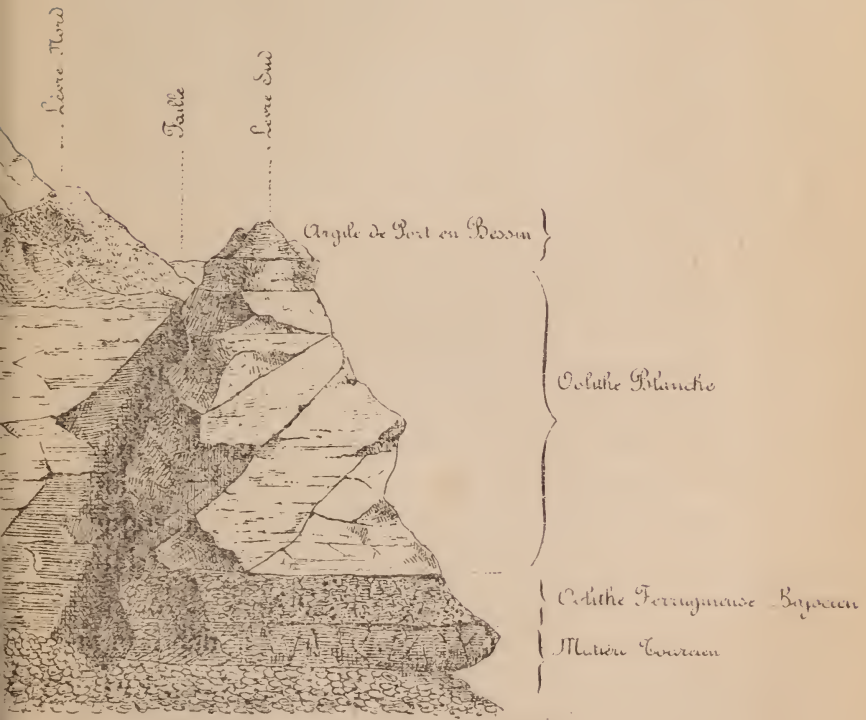 Lèvre Nord
Faille
Levre Sud
Argile de Port en Bessin
Oolithe Blanche
Oolithe Ferrugineuse Bajocien